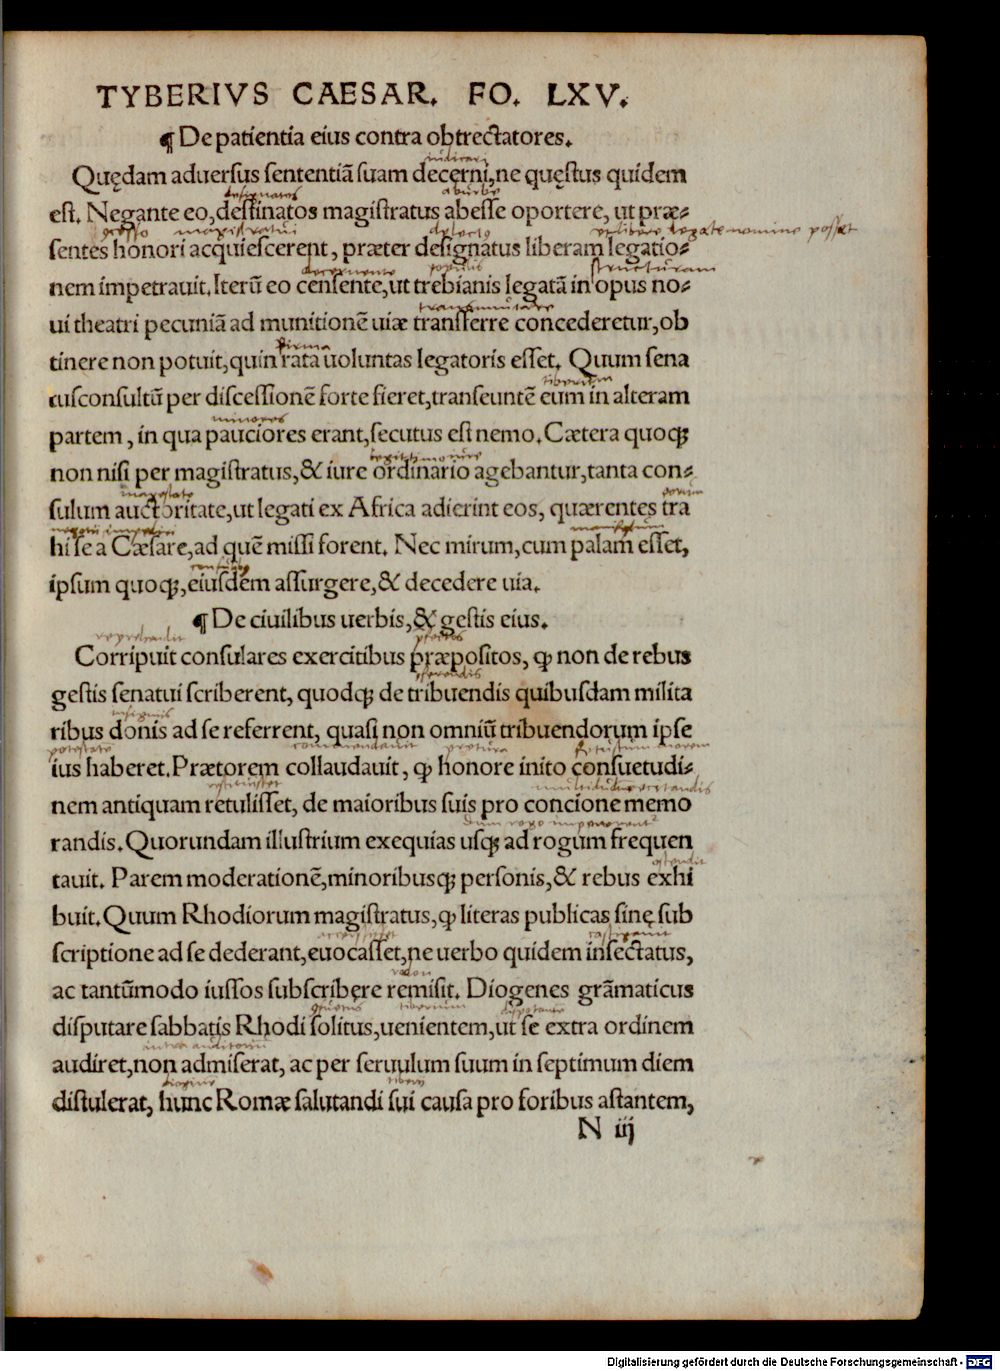 TYBERIVS CAESAR. FO. LXV.
¶ De patientia eius contra obtrectatores.
iudicari
Quędam aduersus sententiã suam decerni, ne quęstus quidem
designatos
est. Negante eo, destinatos magistratus abesse oportere, ut præ⸗
magistratui
sentes honori acquiescerent, præter designatus liberam legatio⸗
decernente populis structuram
nem impetrauit. Iterũ eo censente, ut trebianis legatã in opus no⸗
transmutare
ui theatri pecuniã ad munitionẽ uiæ transferre concederetur, ob
firma
tinere non potuit, quin rata uoluntas legatoris esset. Quum sena
tiberium
tusconsultũ per discessionẽ forte fieret, transeuntẽ eum in alteram
minores
partem, in qua pauciores erant, secutus est nemo. Cætera quoqꝫ
non nisi per magistratus, & iure ordinario agebantur, tanta con⸗
maiestate
sulum auctoritate, ut legati ex Africa adierint eos, quærentes tra
manifestum
hi se a Cæsare, ad quẽ missi forent. Nec mirum, cum palam esset,
ipsum quoqꝫ, eiusdem assurgere, & decedere uia.
¶ De ciuilibus uerbis, & gestis eius.
reprehendit
Corripuit consulares exercitibus præpositos, ꝙ non de rebus
gestis senatui scriberent, quodqꝫ de tribuendis quibusdam milita
insignis
ribus donis ad se referrent, quasi non omniũ tribuendorum ipse
potestatẽ commendauit pretura
ius haberet. Prætorem collaudauit, ꝙ honore inito consuetudi⸗
nem antiquam retulisset, de maioribus suis pro concione memo
randis. Quorundam illustrium exequias usqꝫ ad rogum frequen
ostendit
tauit. Parem moderationẽ, minoribusqꝫ personis, & rebus exhi
buit. Quum Rhodiorum magistratus, ꝙ literas publicas sinę sub
castigauit
scriptione ad se dederant, euocasset, ne uerbo quidem insectatus,
ac tantũmodo iussos subscribere remisit. Diogenes grãmaticus
tiberium
disputare sabbatis Rhodi solitus, uenientem, ut se extra ordinem
intra auditoriũ
audiret, non admiserat, ac per seruulum suum in septimum diem
distulerat, hunc Romæ salutandi sui causa pro foribus astantem,
N iij
Digitalisierung gefördert durch die Deutsche Forschungsgemeinschaft - DFG